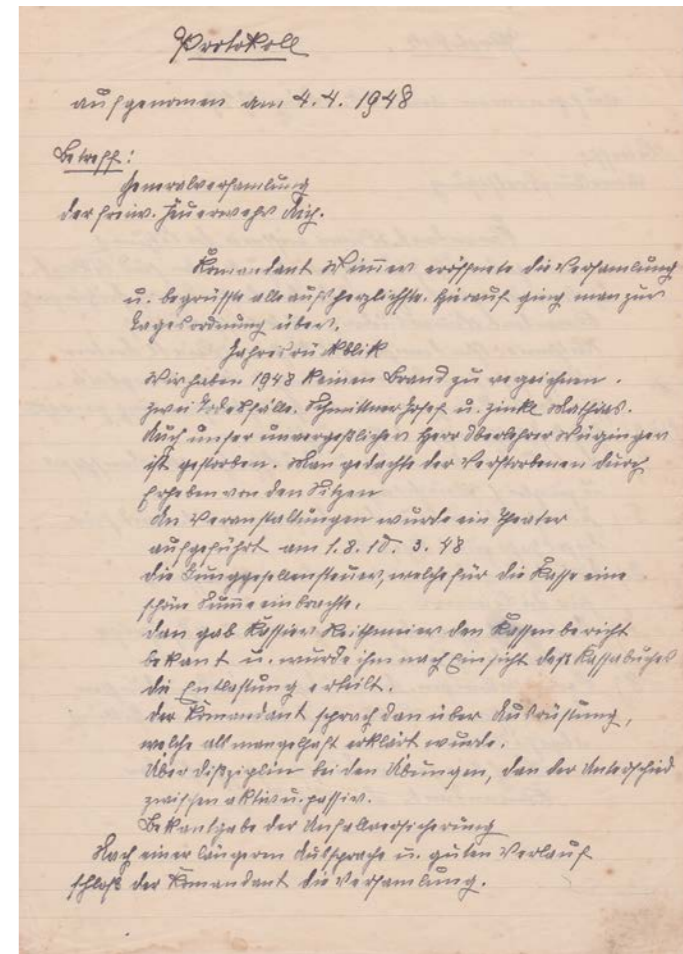 Protokoll
aufgenomen am 4.4. 1948
Betreff:
Generalversamlung
der freiw. Feuerwehr Aich.
Komandant Wim̄er eröffnete die Versamlung
u. begrüsste alle aufs herzlichste. Hierauf ging man zur
Tagesordnung über.
Jahresrükblik
Wir haben 1948 keinen Brand zu verzeichnen.
Zwei Todesfälle. Schmittner Josef u. Zinkl Mathias.
Auch unser unvergeßlicher Herr Oberlehrer
ist gestorben. Man gedachte der Verstorbenen durch
Erheben von den Sitzen
An Veranstaltungen wurde ein Theater
aufgeführt am 1. 8. 10. 3. 48
die Junggesellensteuer, welche für die Kasse eine
schöne Sum̄e einbrachte.
dan gab Kassier Reithmeier den Kassenbericht
bekant u. wurde ihm nach Einsicht deß Kassabuches
die Entlastung erteilt.
der Komandant sprach dan über Ausrüstung,
welche als mangelhaft erklärt wurde.
Über Dißziplin bei den Übungen, dan der Unterschied
zwissen aktiv u. passiv.
Bekantgabe der Unfallversicherung
Nach einer längeren Aussprache u. guten Verlauf
schloß der Komandant die Versamlung.